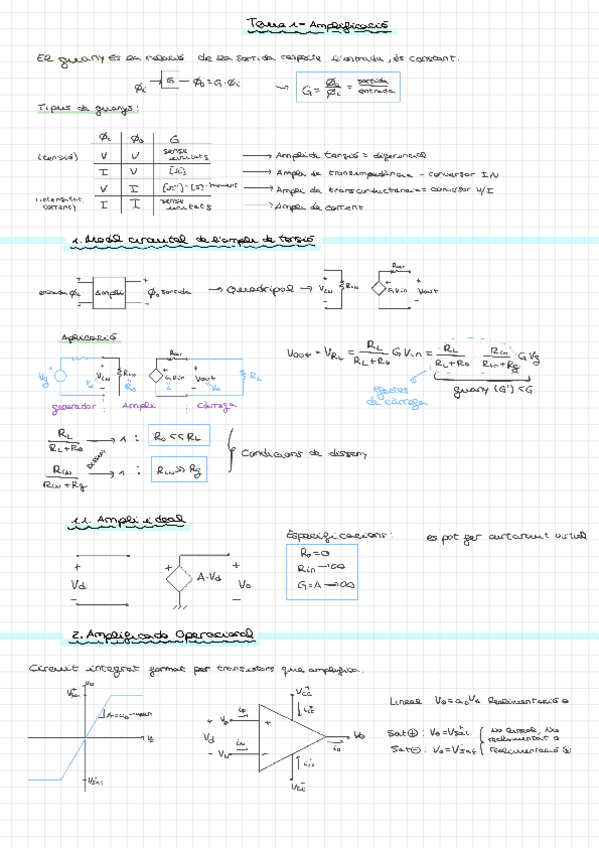 Tema 1 - Amplificació
El guany és la relació de la sortida respecte l'entrada, és constant.
ϕi → G → ϕo = G·ϕi → G = ϕo/ϕi = sortida/entrada
Tipus de guanys:
ϕi ϕo G
(tensió) V V sense unitats → Ampli de tensió = diferencial
I V [Ω] → Ampli de transimpedància - conversor I/V
V I [Ω⁻¹]=[S] → Ampli de transconductància = conversor V/I
corrent) I I sense unitats → Ampli de corrent
1. Model circuital de l'ampli de tensió
entrada ϕi Ampli ϕo sortida → Quadripol → Vin Rin Rout G·Vin Vout
Aplicació
Vg Vin Rin Rout G·Vin Vout RL
generador Ampli càrrega
Vout = VRL = RL/(RL+Ro) G Vin = RL/(RL+Ro) · Rin/(Rin+Rg) G Vg
efectes de càrrega
guany (G') < G
RL/(RL+Ro) → 1 : Ro << RL
Rin/(Rin+Rg) → 1 : Rin >> Rg
Condicions de disseny
1.1. Ampli ideal
Especificacions:
es pot fer curtcircuit virtual
Ro = 0
Rin → ∞
G = A → ∞
+ Vd − + A·Vd + Vo −
2. Amplificador Operacional
Circuit integrat format per transistors que amplifica.
Lineal Vo = ao Vd Realimentació ⊖
Sat ⊕: Vo = Vsat⁺
Sat ⊖: Vo = Vsat⁻
no lineal, no realimentat o realimentació ⊕